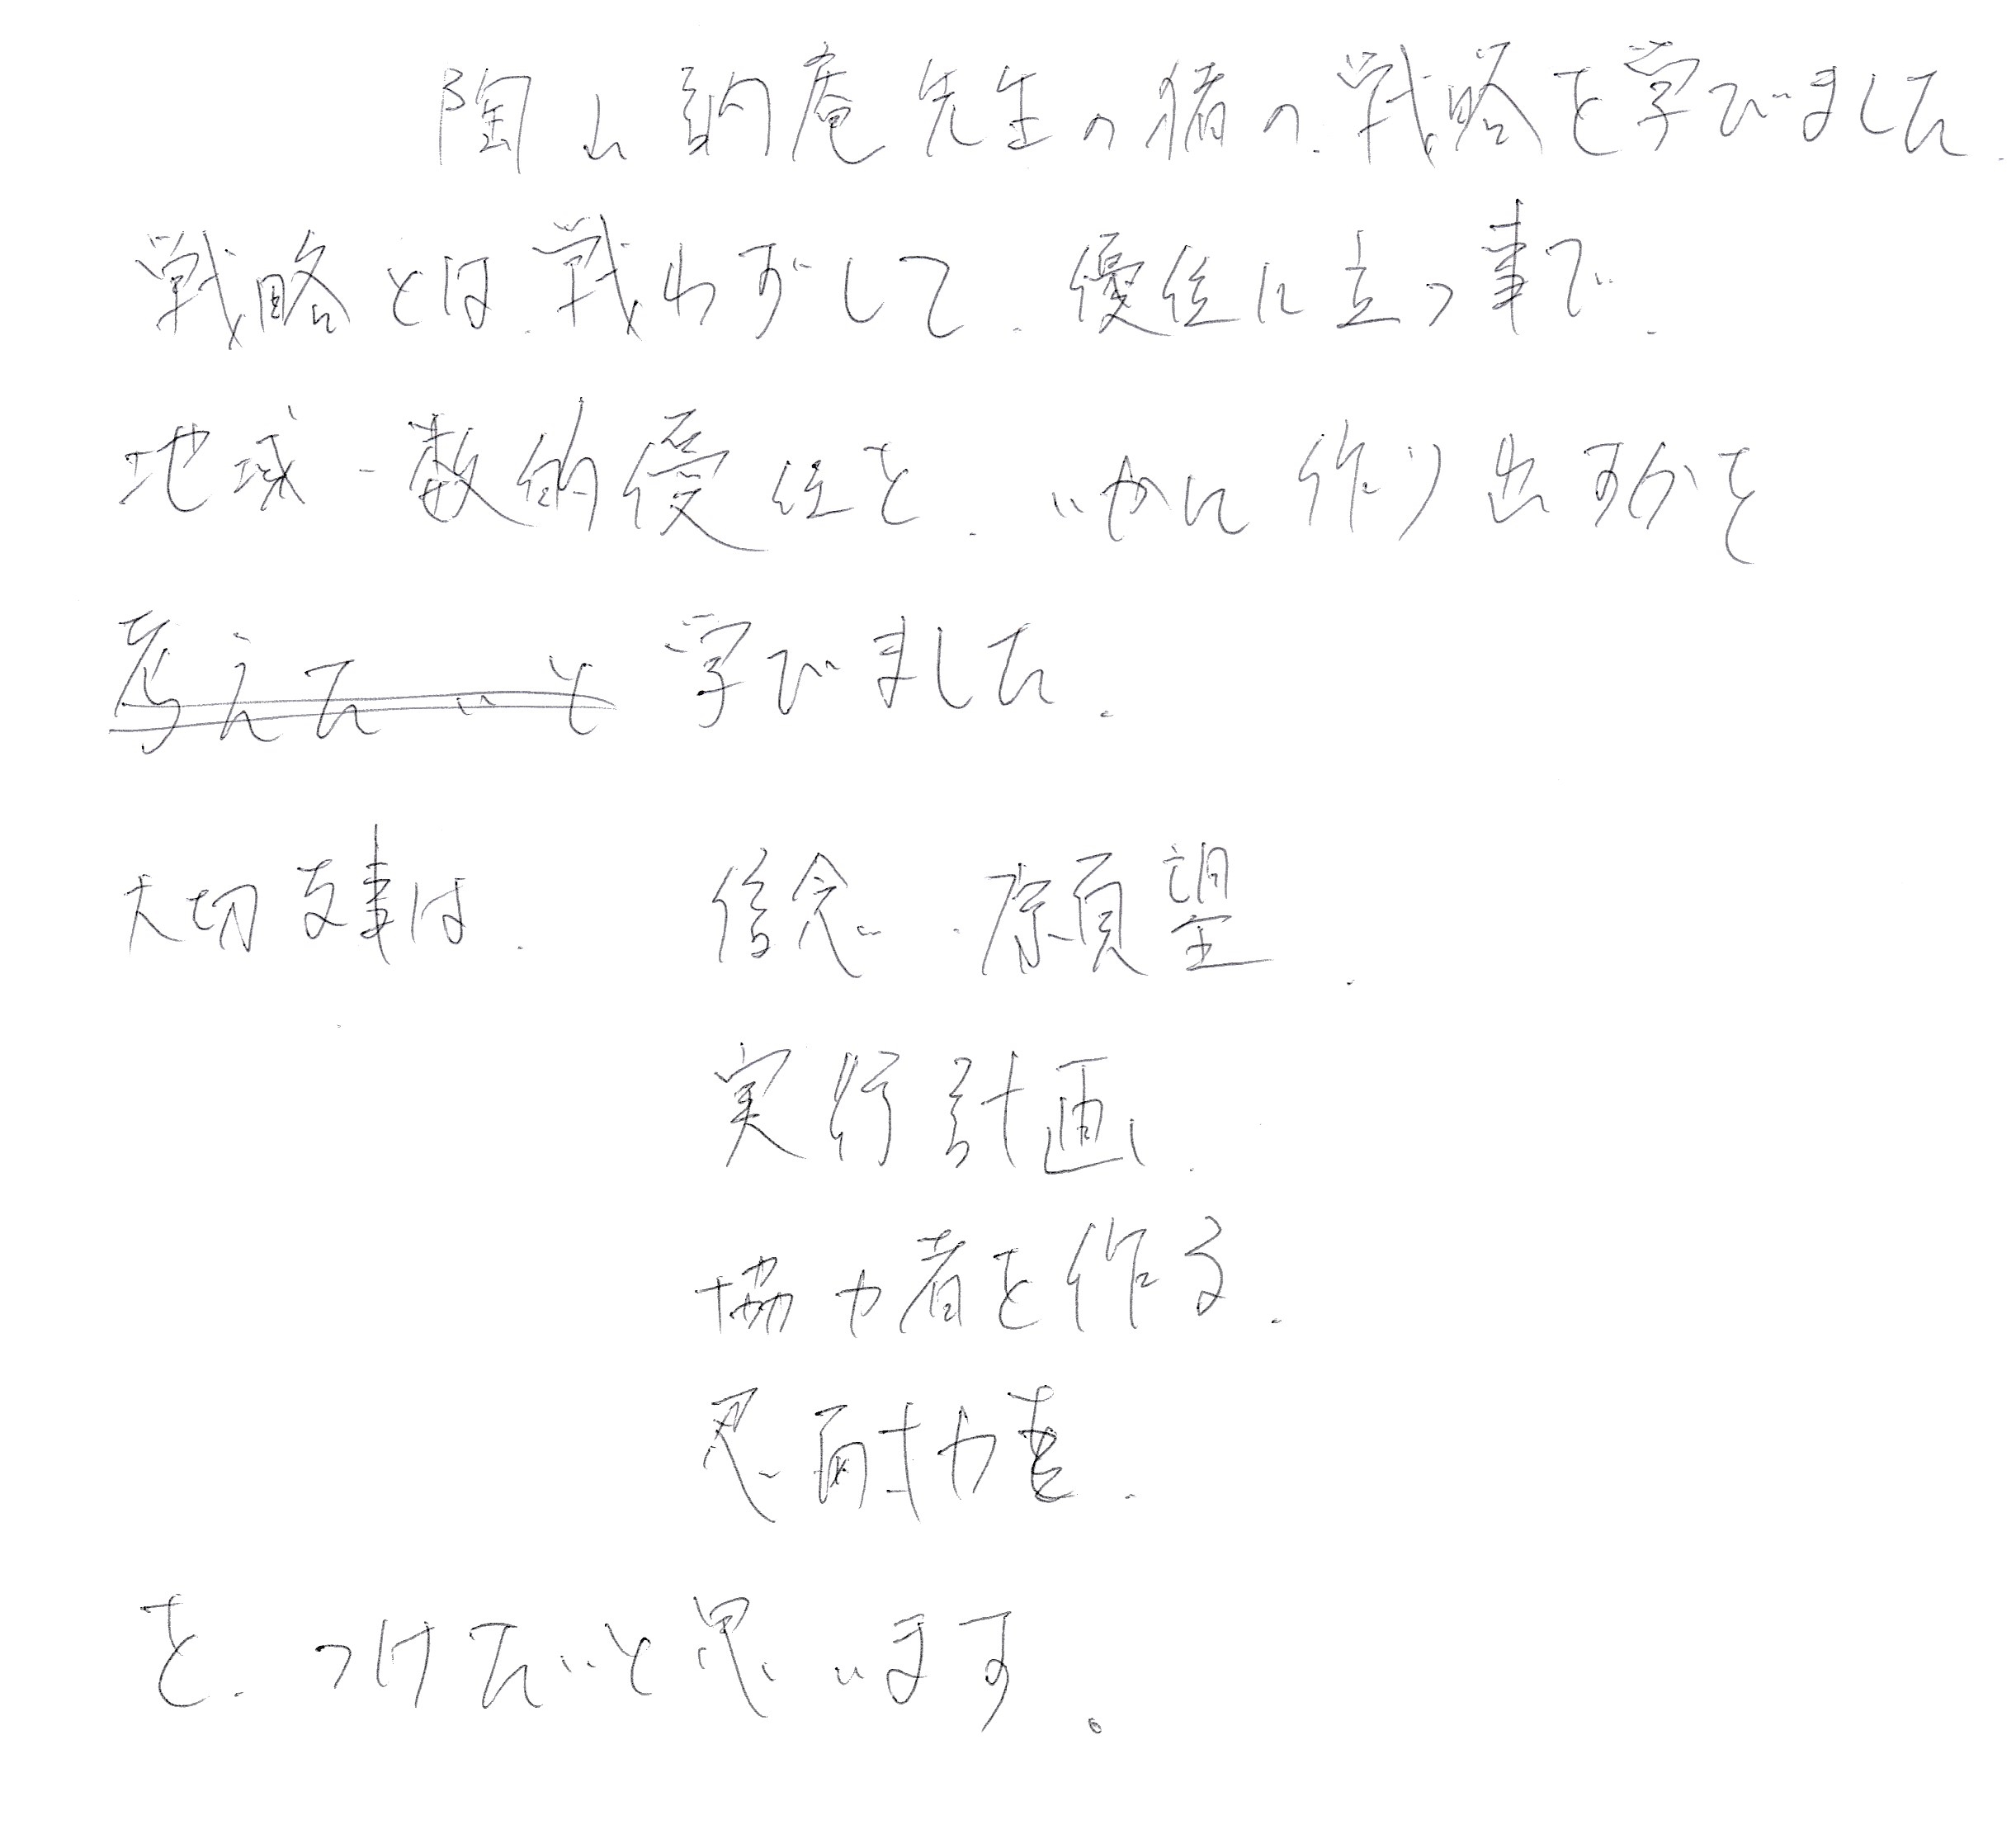 陶山訥庵先生の猪の、戦略を学びました、
戦略とは、戦わずして、優位に立つ事で、
地域・数的優位を、いかに作り出すかを
考えたいと 学びました、
大切な事は、 信念・願望、
実行計画、
協力者を作る、
忍耐力を、
を、つけたいと思います。